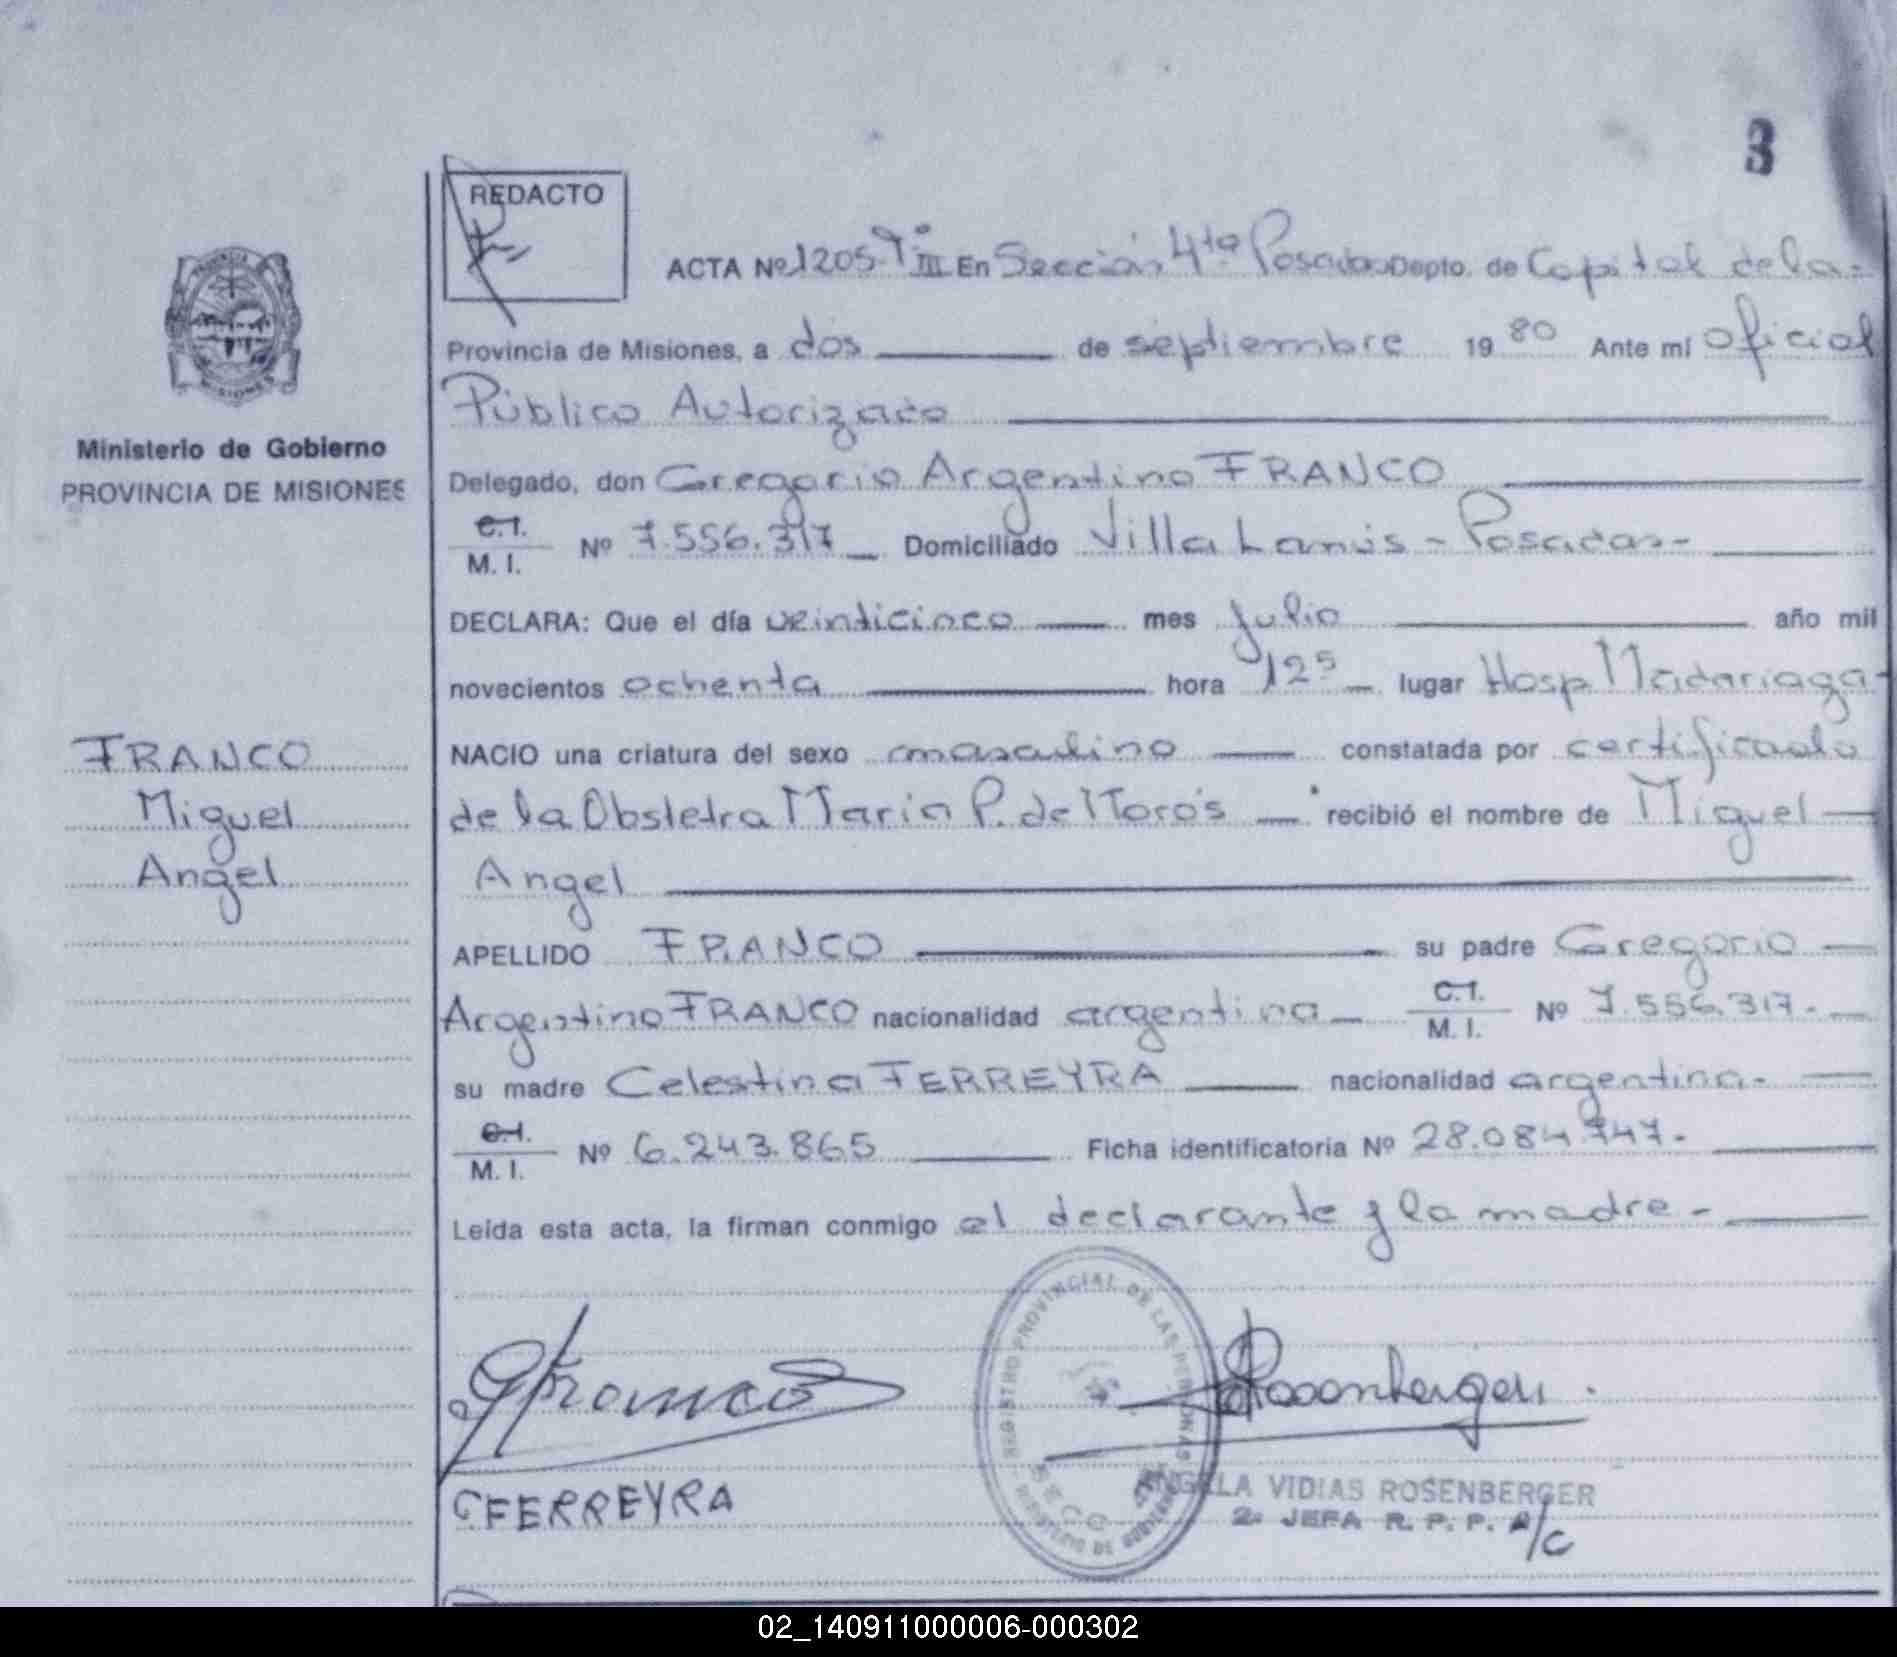 3
REDACTO
ACTA Nº 1205 Tº III En Sección 4ta Posadas Depto. de Capital de la-
Provincia de Misiones, a dos de septiembre 1980 Ante mi Oficial
Público Autorizado
Delegado, don Gregorio Argentino FRANCO
C.I.
M. I. Nº 7.556.317 Domiciliado Villa Lanús - Posadas-
DECLARA: Que el día veinticinco mes julio año mil
novecientos ochenta hora 125 lugar Hosp Madariaga-
NACIO una criatura del sexo masculino constatada por certificado
de la Obstetra Maria P. de Moros recibió el nombre de Miguel
Angel
APELLIDO FRANCO su padre Gregorio
Argentino FRANCO nacionalidad argentina C.I.
M. I. Nº 7.556.317.
su madre Celestina FERREYRA nacionalidad argentina-
C.I.
M. I. Nº 6.243.865 Ficha identificatoria Nº 28.084.747-
Leída esta acta, la firman conmigo el declarante y la madre-
Ministerio de Gobierno
PROVINCIA DE MISIONES
FRANCO
Miguel
Angel
GFranco
Rosenberger
CFERREYRA
REGISTRO PROVINCIAL DE LAS PERSONAS
MINISTERIO DE GOBIERNO
ANGELA VIDIAS ROSENBERGER
2: JEFA R. P. P. A/C
02_140911000006-000302